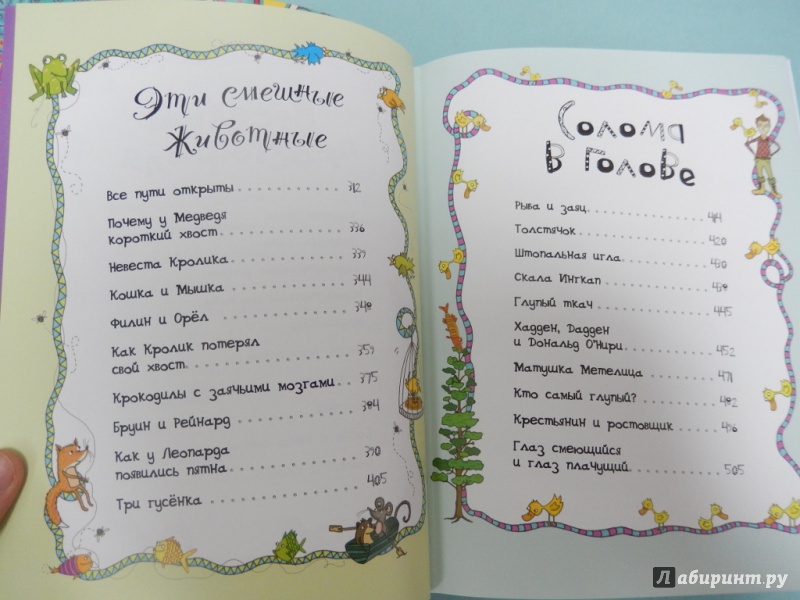 Эти смешные
животные
Все пути открыты 312
Почему у Медведя
короткий хвост 336
Невеста Кролика 339
Кошка и Мышка 344
Филин и Орёл 348
Как Кролик потерял
свой хвост 359
Крокодилы с заячьими мозгами 375
Бруин и Рейнард 384
Как у Леопарда
появились пятна 390
Три гусёнка 405
Солома
в голове
Рыба и заяц 414
Толстячок 420
Штопальная игла 430
Скала Ингкап 438
Глупый ткач 445
Хадден, Дадден
и Дональд О'Нири 452
Матушка Метелица 471
Кто самый глупый? 482
Крестьянин и ростовщик 496
Глаз смеющийся
и глаз плачущий 505
Лабиринт.ру